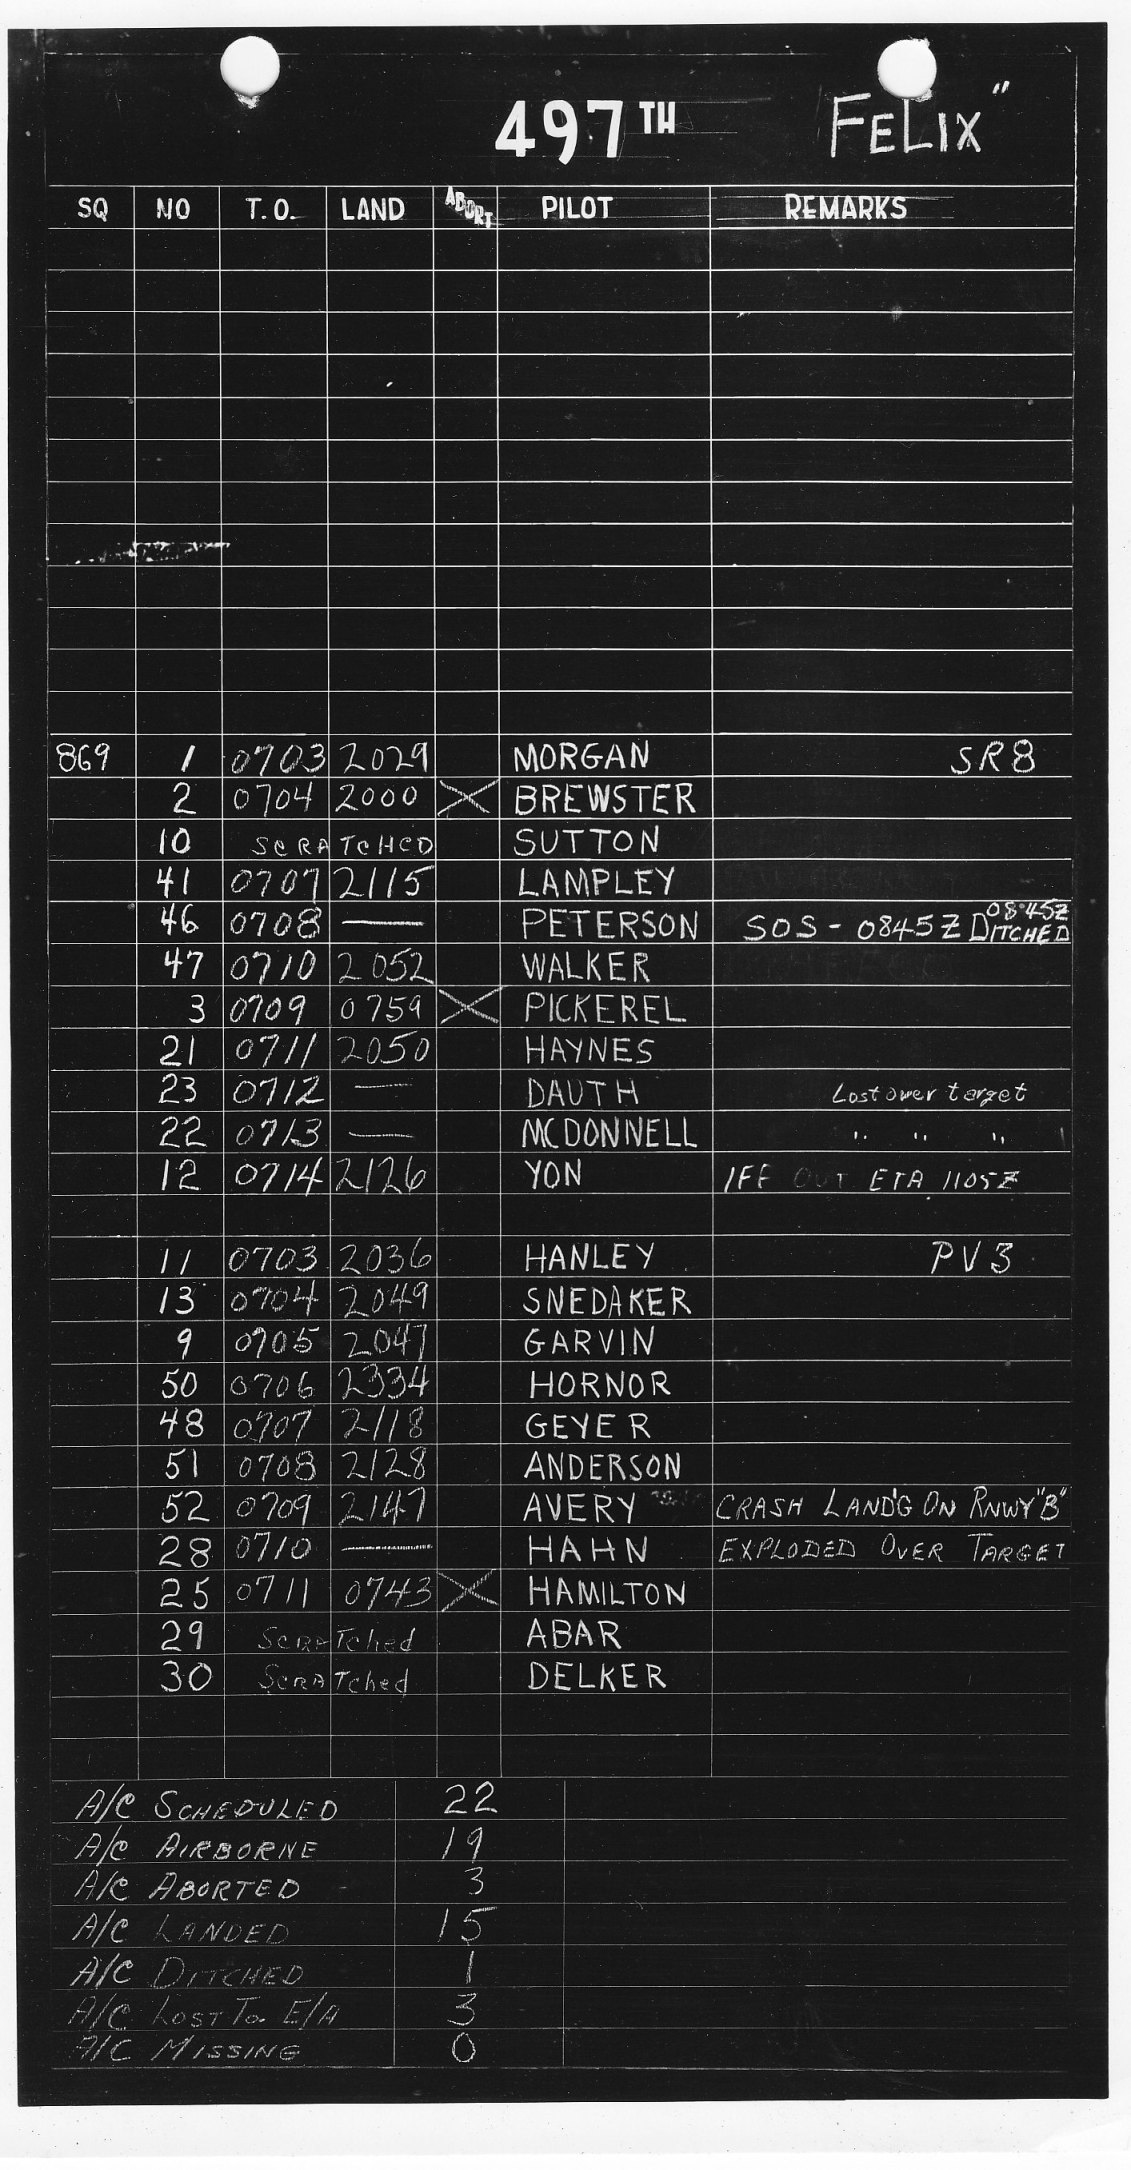 497TH FELIX"
SQ NO T.O. LAND ABORT PILOT REMARKS
869 1 0703 2029 MORGAN SR8
2 0704 2000 X BREWSTER
10 SCRATCHED SUTTON
41 0707 2115 LAMPLEY
46 0708 — PETERSON SOS - 0845Z DITCHED 0845Z
47 0710 2052 WALKER
3 0709 0759 X PICKEREL
21 0711 2050 HAYNES
23 0712 — DAUTH Lost over target
22 0713 — MCDONNELL " " "
12 0714 2126 YON IFF OUT ETA 1105Z
11 0703 2036 HANLEY PV3
13 0704 2049 SNEDAKER
9 0705 2047 GARVIN
50 0706 2334 HORNOR
48 0707 2118 GEYER
51 0708 2128 ANDERSON
52 0709 2147 AVERY CRASH LAND'G ON RNWY "B"
28 0710 — HAHN EXPLODED OVER TARGET
25 0711 0743 X HAMILTON
29 Scratched ABAR
30 Scratched DELKER
A/C SCHEDULED 22
A/C AIRBORNE 19
A/C ABORTED 3
A/C LANDED 15
A/C DITCHED 1
A/C LOST TO E/A 3
A/C MISSING 0